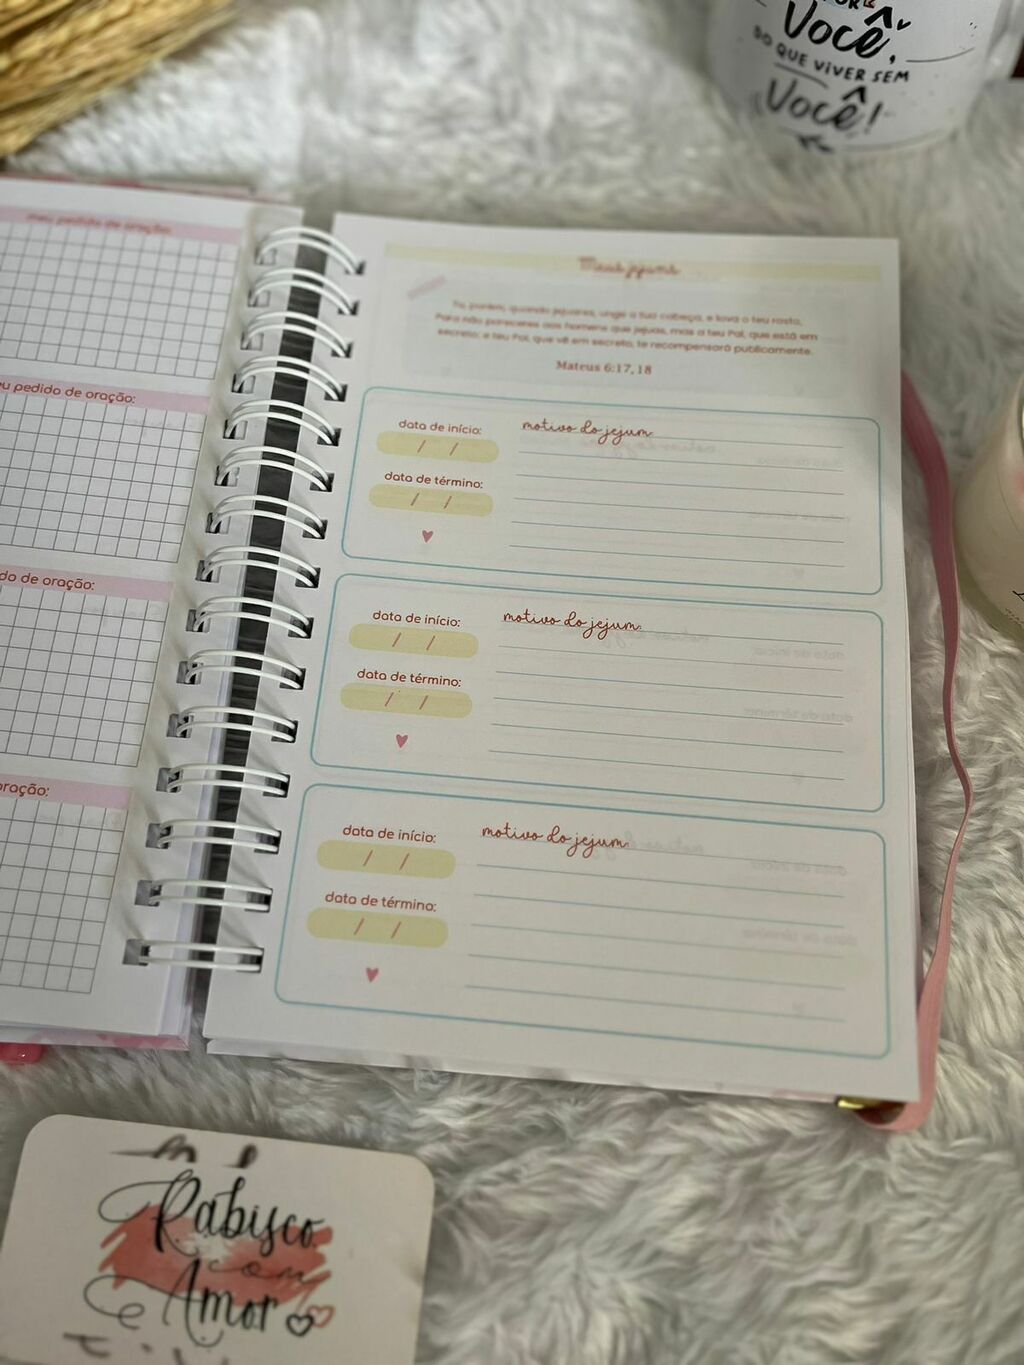 Você,
DO QUE VIVER SEM
Você!
meu pedido de oração:
pedido de oração:
do de oração:
oração:
Meus jejuns
Tu, porém, quando jejuares, unge a tua cabeça, e lava o teu rosto,
Para não pareceres aos homens que jejuas, mas a teu Pai, que está em
secreto; e teu Pai, que vê em secreto, te recompensará publicamente.
Mateus 6:17, 18
data de início:
/ /
data de término:
/ /
motivo do jejum:
data de início:
/ /
data de término:
/ /
motivo do jejum:
data de início:
/ /
data de término:
/ /
motivo do jejum:
Rabisco
com
Amor